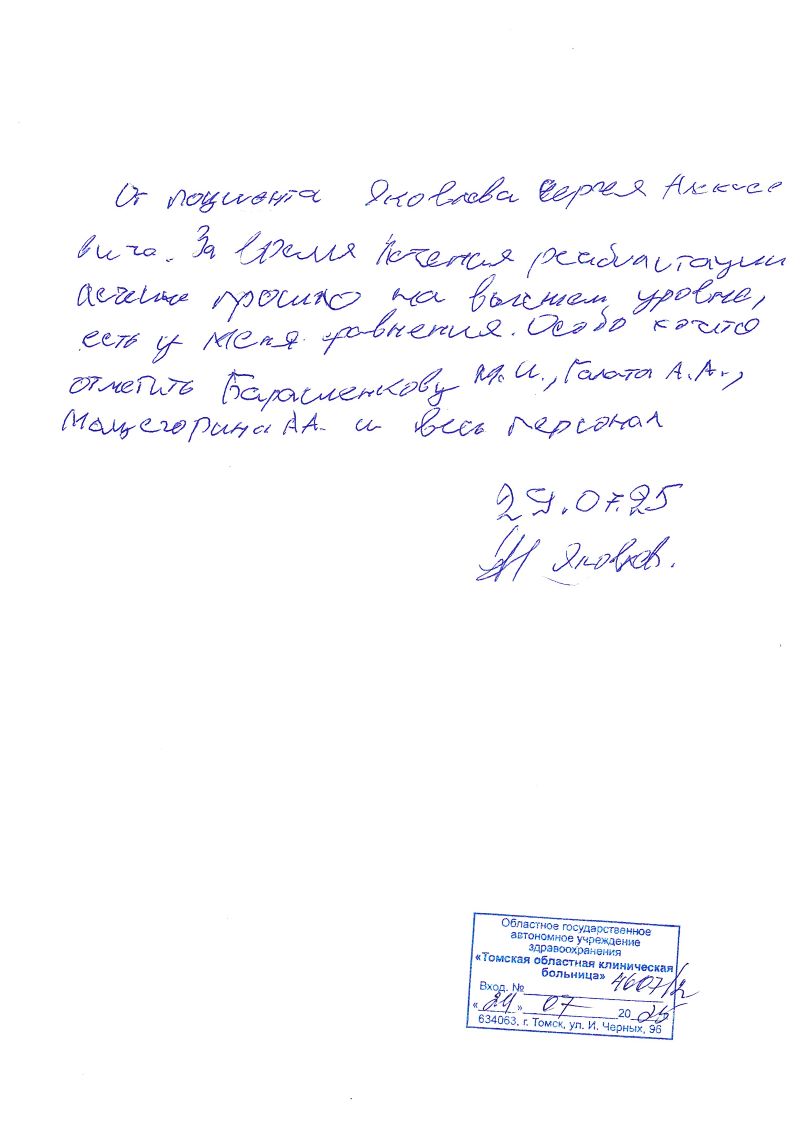 От пациента Яковлева Сергея Алексее
вича. За время лечения реабилитации
лечение прошло на высшем уровне,
есть у меня сравнения. Особо хочется
отметить М.И., Галата А.А.,
Мащегорина А.А. и весь персонал
29.07.25
Яковлев.
Областное государственное
автономное учреждение
здравоохранения
«Томская областная клиническая
больница»
Вход. № 4607/2
«29» 07 2025
634063, г. Томск, ул. И. Черных, 96